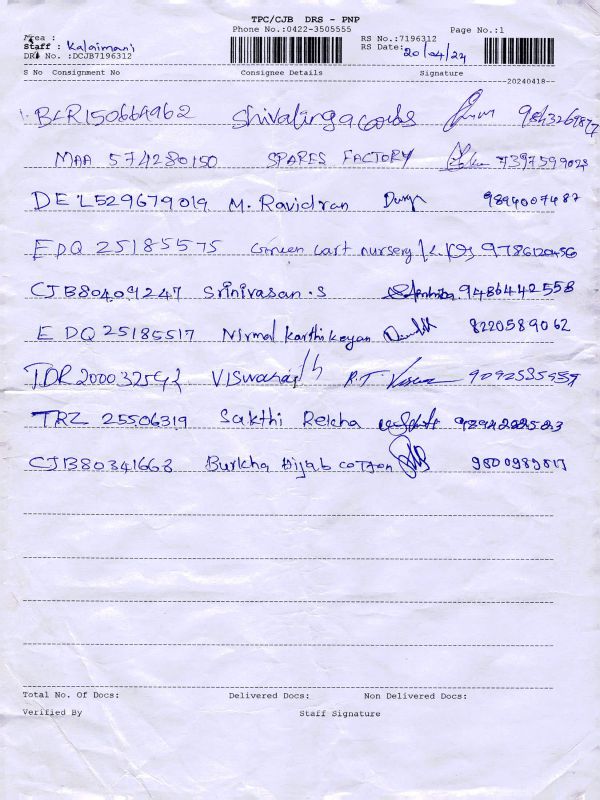 TPC/CJB DRS - PNP
Area :
Phone No.:0422-3505555
Page No.:1
Staff : Kalaimani
RS No.:7196312
DRS No. :DCJB7196312
RS Date: 20/04/24
S No Consignment No Consignee Details Signature
20240418
BLR150664962 Shivalinga
MAA 574280150 SPARES FACTORY 7397599028
DEL529679019 M. Ravidran Durga 9894007487
EDQ 25185575 Green cart nursery 9786120456
CJB80409247 Srinivasan.S 9486442558
EDQ 25185517 Nirmal Karthikeyan 8220589062
R.T.
TRZ 25506319 Sakthi Rekha
CJB80341663 Burkha Hijab cotton
Total No. Of Docs: Delivered Docs: Non Delivered Docs:
Verified By Staff Signature